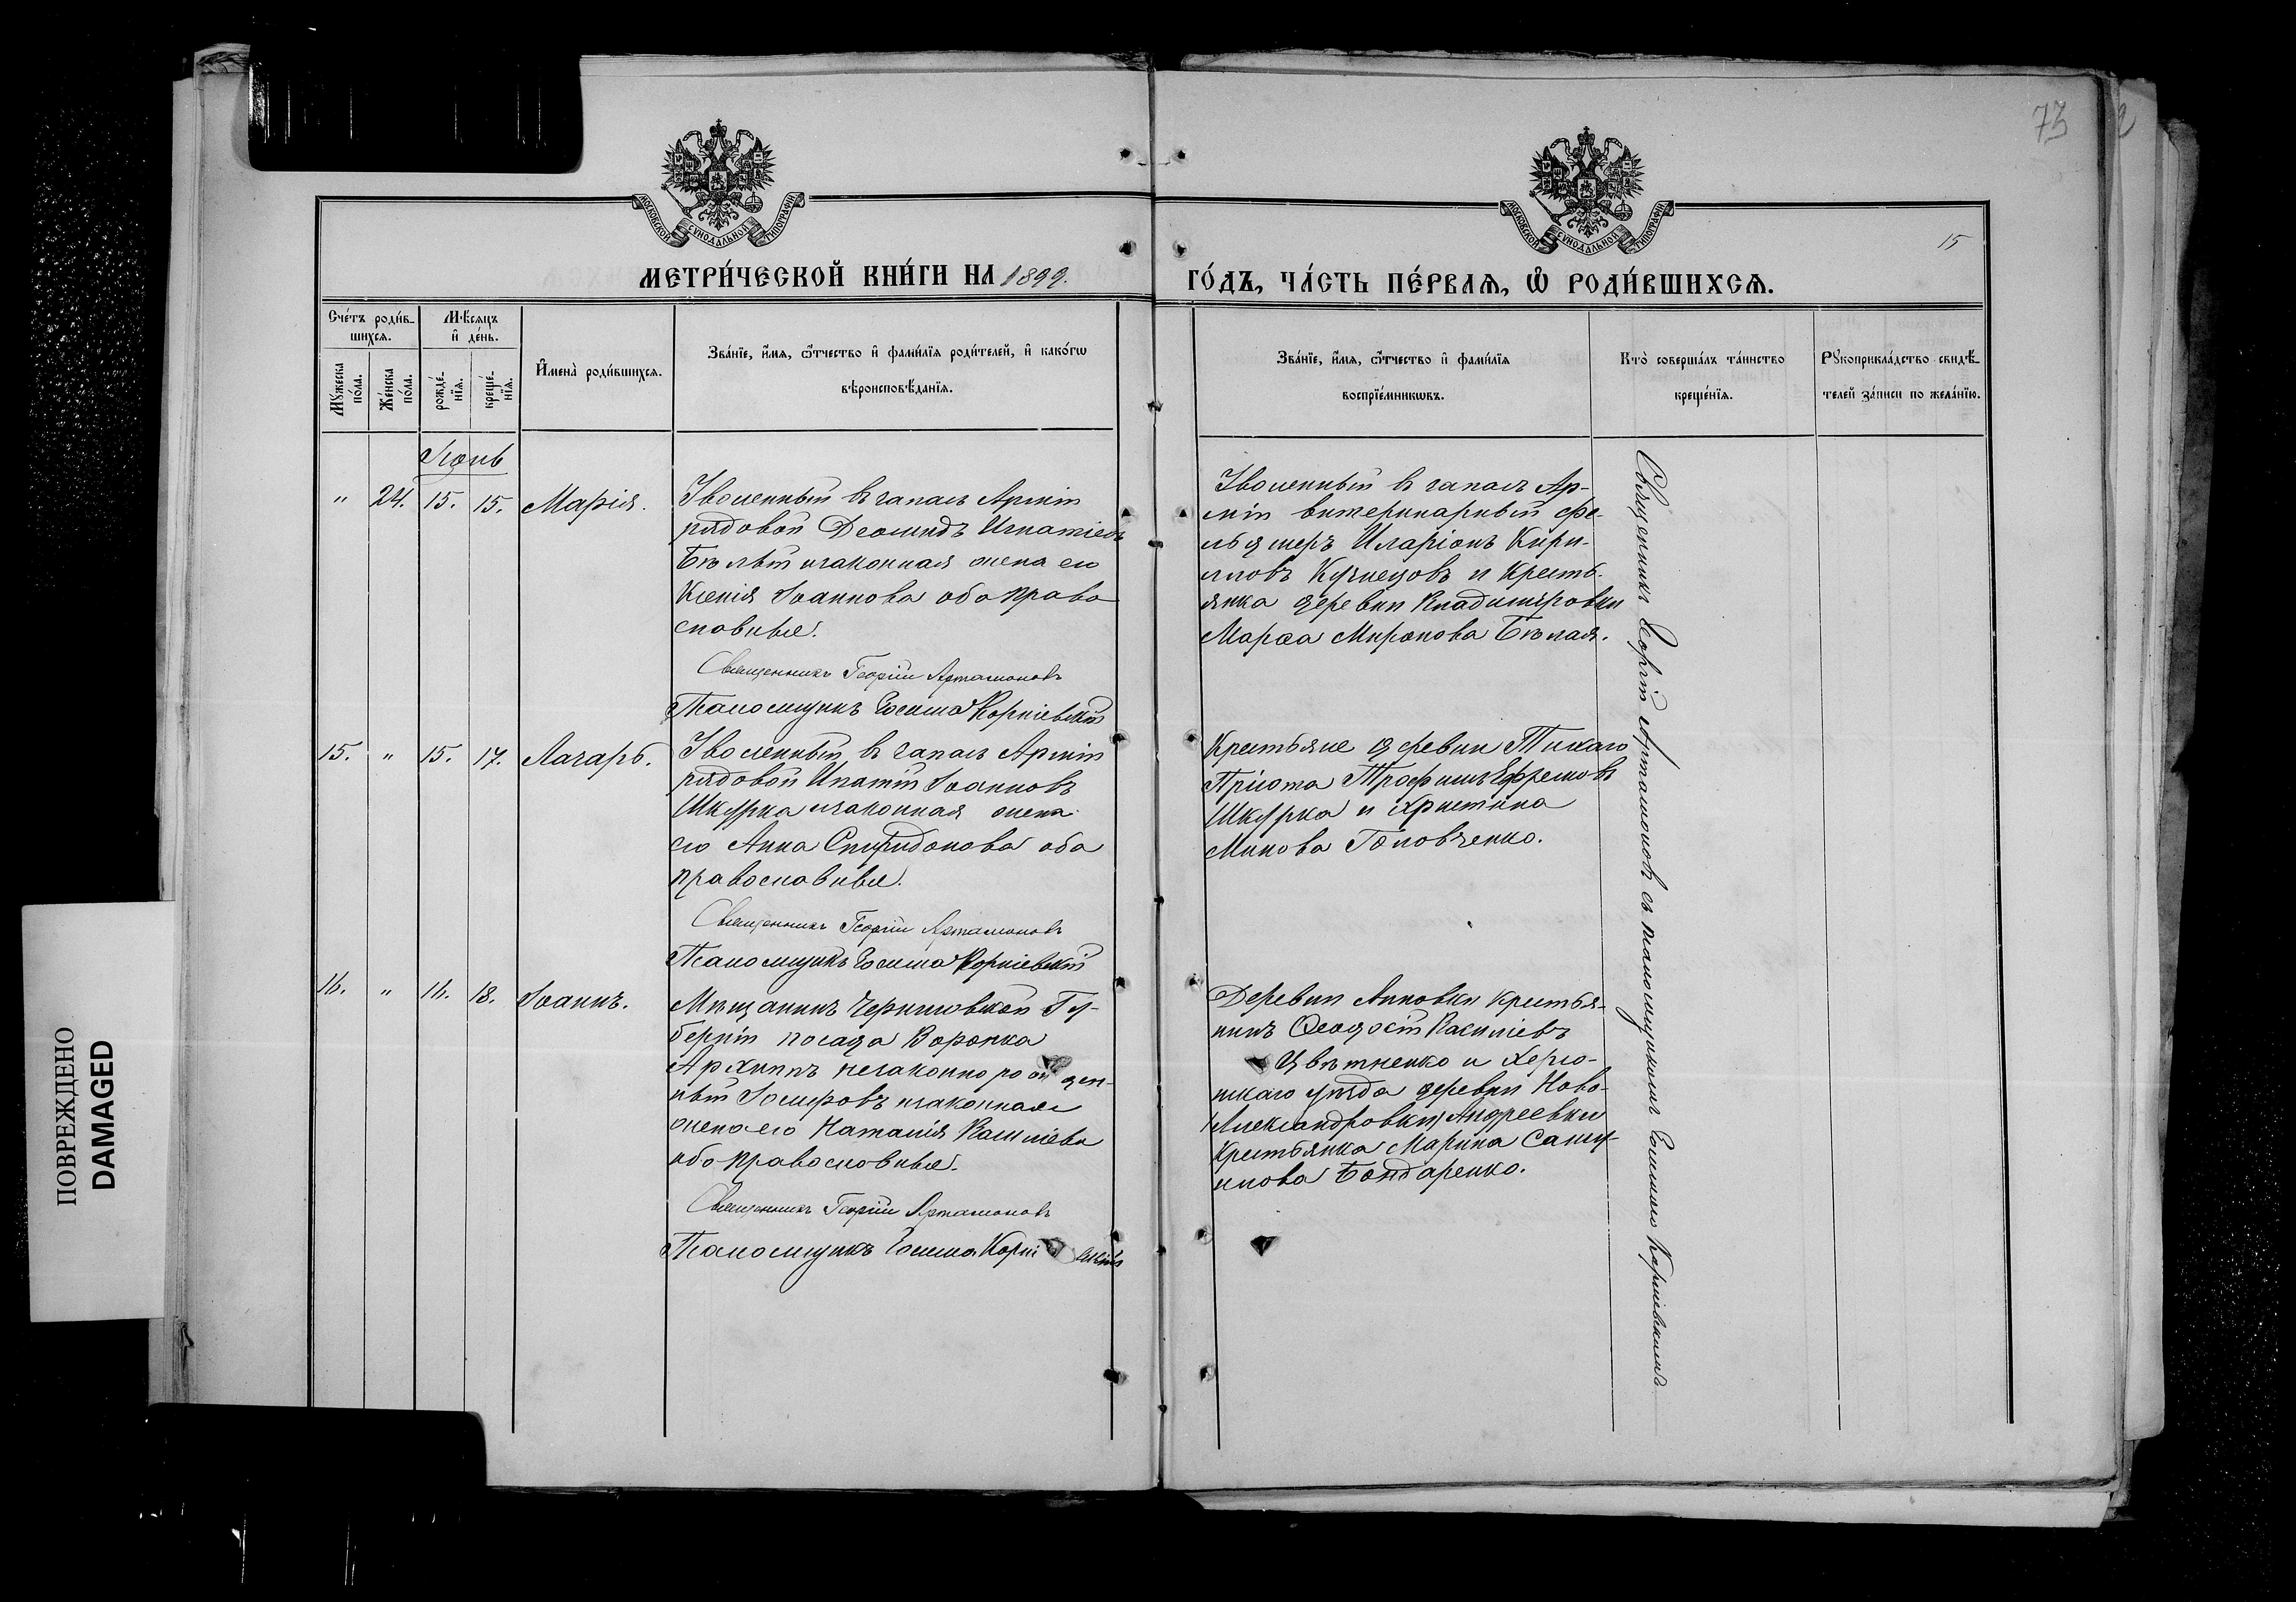 73
15
МОСКОВСКОЙ СУНОДАЛЬНОЙ ТИПОГРАФІИ
МОСКОВСКОЙ СУНОДАЛЬНОЙ ТИПОГРАФІИ
МЕТРИ́ЧЕСКОЙ КНИ́ГИ НА 1899.
ГО́ДЪ, ЧА́СТЬ ПЕ́РВАѦ, Ѡ҆ РОДИ́ВШИХСѦ.
Сче́тъ роди́в-
шихсѧ.
Мꙋ́жеска
по́ла.
Же́нска
по́ла.
Мѣ́сѧцъ
и҆ де́нь.
рожде́-
нїѧ.
креще́-
нїѧ.
И҆мена̀ роди́вшихсѧ.
Зва́нїе, и҆́мѧ, ѻ҆́тчество и҆ фами́лїѧ роди́телей, и҆ како́гѡ
вѣроисповѣ́данїѧ.
Зва́нїе, и҆́мѧ, ѻ҆́тчество и҆ фами́лїѧ
воспрїе́мникѡвъ.
Кто̀ соверша́лъ та́инство
креще́нїѧ.
Рꙋкоприкла́дство свидѣ́-
телей за́писи по жела́нїю.
Іюнь
" 24. 15. 15. Марія.
Уволенный въ запасъ Арміи
рядовой Деомидъ Игнатіевъ
Бѣлый и законная жена его
Ксенія Іоаннова оба право
славные.
Священникъ Георгій Артамоновъ
Псаломщикъ Зосима Корніевскій
Уволенный въ запасъ Ар-
міи ветеринарный фе-
льдшеръ Иларіонъ Кири-
лловъ Кузнецовъ и Кресть-
янка деревни Владиміровки
Марѳа Миронова Бѣлая.
15. " 15. 17. Лазарь.
Уволенный въ запасъ Арміи
рядовой Ипатій Іоанновъ
Шкурка и законная жена
его Анна Спиридонова оба
православные.
Священникъ Георгій Артамоновъ
Псаломщикъ Зосима Корніевскій
Крестьяне деревни Тихаго
Пріюта Трофимъ Ефремовъ
Шкурка и Христина
Минова Головченко.
16. " 16. 18. Іоаннъ.
Мѣщанинъ Черниговской Гу-
берніи посада Воронка
Архиппъ незаконнорожден-
ный Іосифовъ и законная
жена его Наталія Василіева
оба православные.
Священникъ Георгій Артамоновъ
Псаломщикъ Зосима Корні скій
Деревни Анновки крестья-
нинъ Ѳеодосій Василіевъ
Цвѣтненко и Херсо-
нскаго уѣзда деревни Ново-
Александровки, Андреевки
крестьянка Марина Саму-
илова Бондаренко.
Священникъ Георгій Артамоновъ съ псаломщикомъ Зосимою Корніевскимъ
ПОВРЕЖДЕНО
DAMAGED